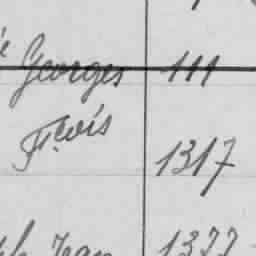 Georges 111
Fçois 1317
Jean 1377